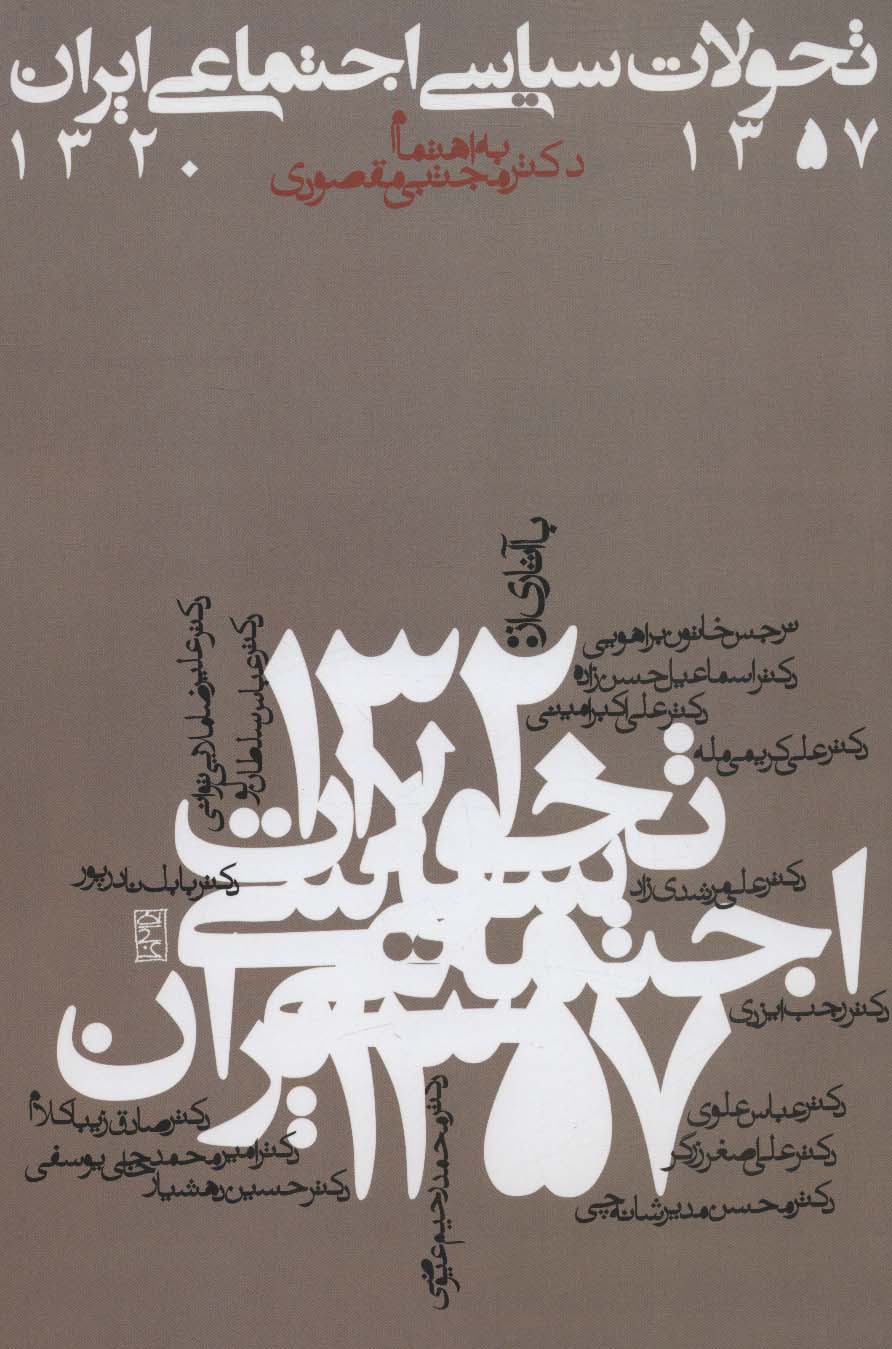 تحولات سیاسی اجتماعی ایران
۱۳۵۷ ۱۳۲۰
به اهتمام
دکتر مجتبی مقصودی
با آثاری از:
نرجس خاتون براهویی
دکتر اسماعیل حسن‌زاده
دکتر علی اکبر امینی
دکتر علی کریمی مله
دکتر علیرضا ملایی توانی
دکتر عباس سلطان پور
دکتر علی مرشدی زاد
دکتر بابک نادرپور
دکتر رجب ایزدی
دکتر عباس علوی
دکتر علی اصغر زرگر
دکتر محسن مدیر شانه چی
دکتر محمد رحیم عیوضی
دکتر صادق زیباکلام
دکتر امیر محمد حاجی یوسفی
دکتر حسین رهشیار
۱۳۲۰
تحولات
سیاسی
اجتماعی
ایران
۱۳۵۷